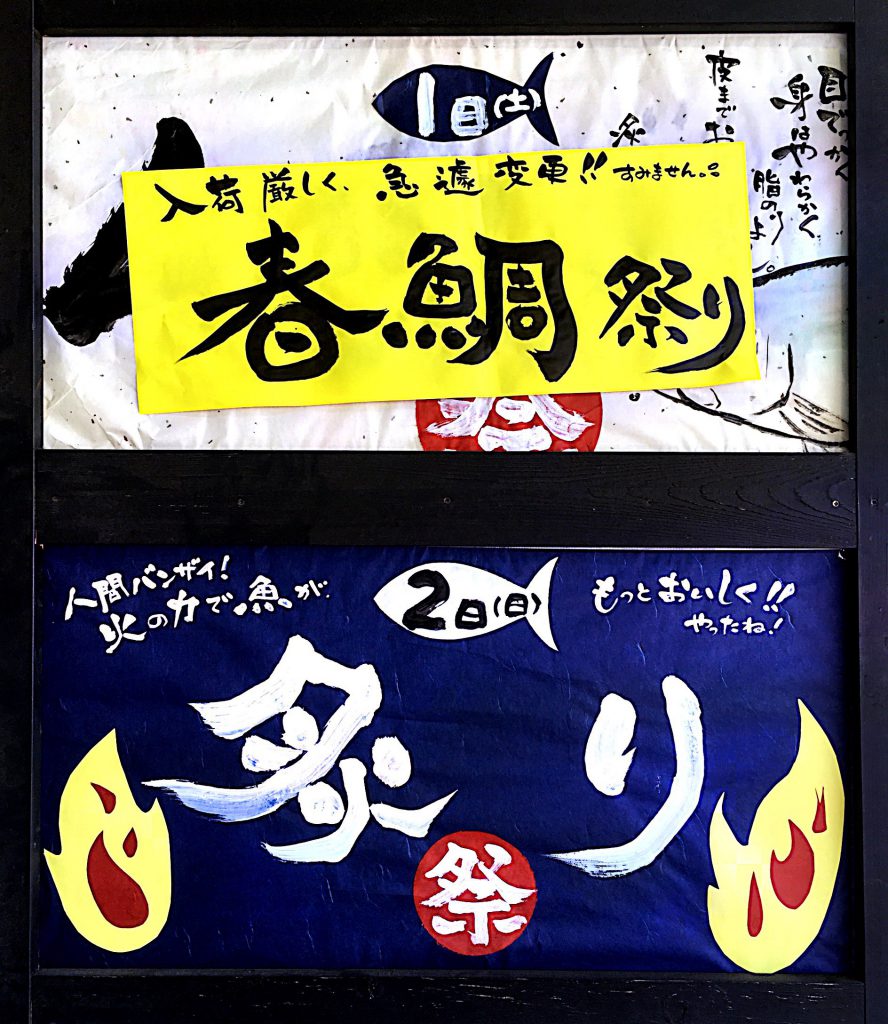 1日(土)
目でっかく
身はやわらかく
脂のり
皮まで
炙
入荷厳しく、急遽変更!!すみません。
春鯛祭り
2日(日)
人間バンザイ!
火の力で魚が
もっとおいしく!!
やったね!
炙り
祭